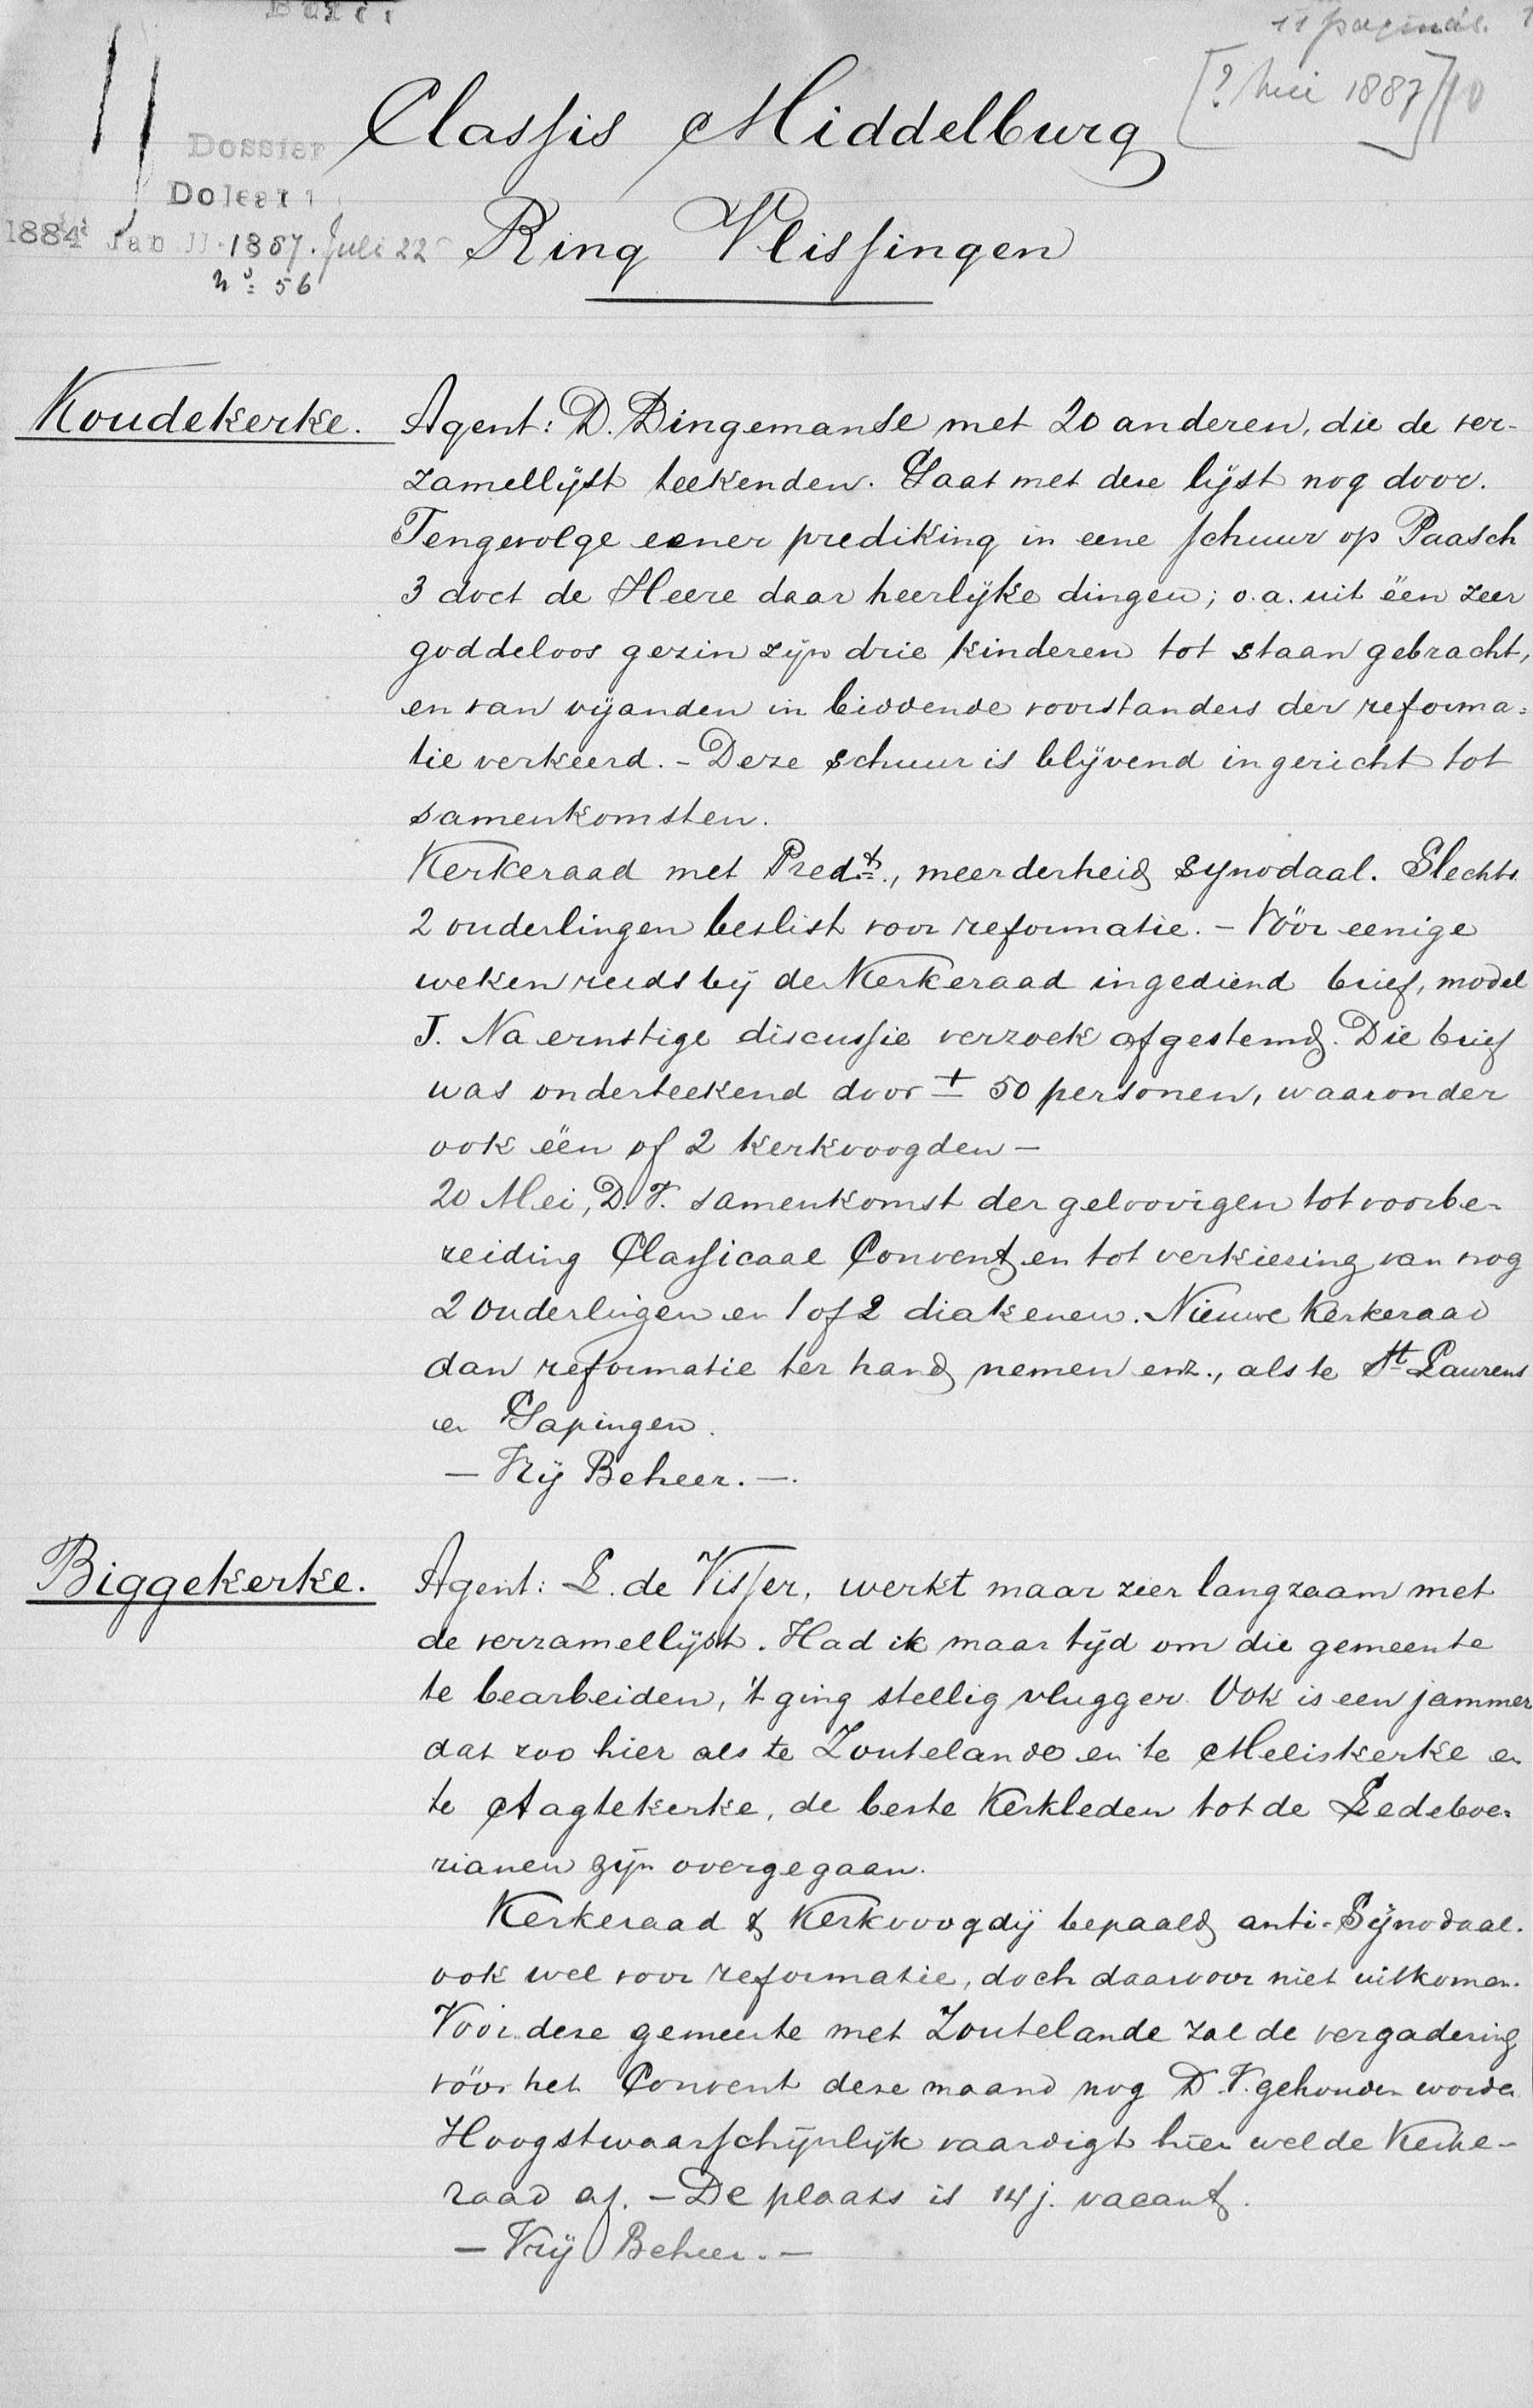 11 pagina's.
[? Mei 1887]
Dossier
Doleantie
1884 Jan 11 - 1887. Juli 22
no: 56
Classis Middelburg
Ring Vlissingen
Koudekerke. Agent: D. Dingemanse met 20 anderen, die de ver-
zamellijst teekenden. Gaat met deze lijst nog door.
Tengevolge eener prediking in eene schuur op Paasch
3 doet de Heere daar heerlijke dingen; o.a. uit één zeer
goddeloos gezin zijn drie kinderen tot staan gebracht,
en van vijanden in biddende voorstanders der reforma=
tie verkeerd. - Deze schuur is blijvend ingericht tot
samenkomsten.
Kerkeraad met Predt., meerderheid synodaal. Slechts
2 ouderlingen beslist voor reformatie. - Vóór eenige
weken reeds bij de Kerkeraad ingediend brief, model
J. Na ernstige discussie verzoek afgestemd. Die brief
was onderteekend door ± 50 personen, waaronder
ook één of 2 kerkvoogden -
20 Mei, D.V. samenkomst der geloovigen tot voorbe-
reiding Classicaal Convent en tot verkiezing van nog
2 Ouderlingen en 1 of 2 diakenen. Nieuwe Kerkeraad
dan reformatie ter hand nemen enz., als te St Laurens
en Gapingen.
- Vrij Beheer. -.
Biggekerke. Agent: L. de Visser, werkt maar zeer langzaam met
de verzamellijst. Had ik maar tijd om die gemeente
te bearbeiden, 't ging stellig vlugger. Ook is een jammer
dat zoo hier als te Zoutelande en te Meliskerke en
te Aagtekerke, de beste Kerkleden tot de Ledeboe=
rianen zijn overgegaan.
Kerkeraad & Kerkvoogdij bepaald anti-Synodaal.
ook wel voor reformatie, doch daarvoor niet uitkomen.
Voor deze gemeente met Zoutelande zal de vergadering
vóór het Convent deze maand nog D.V. gehouden worden
Hoogstwaarschijnlijk vaardigt hier wel de Kerke-
raad af. - De plaats is 14 j. vacant.
- Vrij Beheer. -